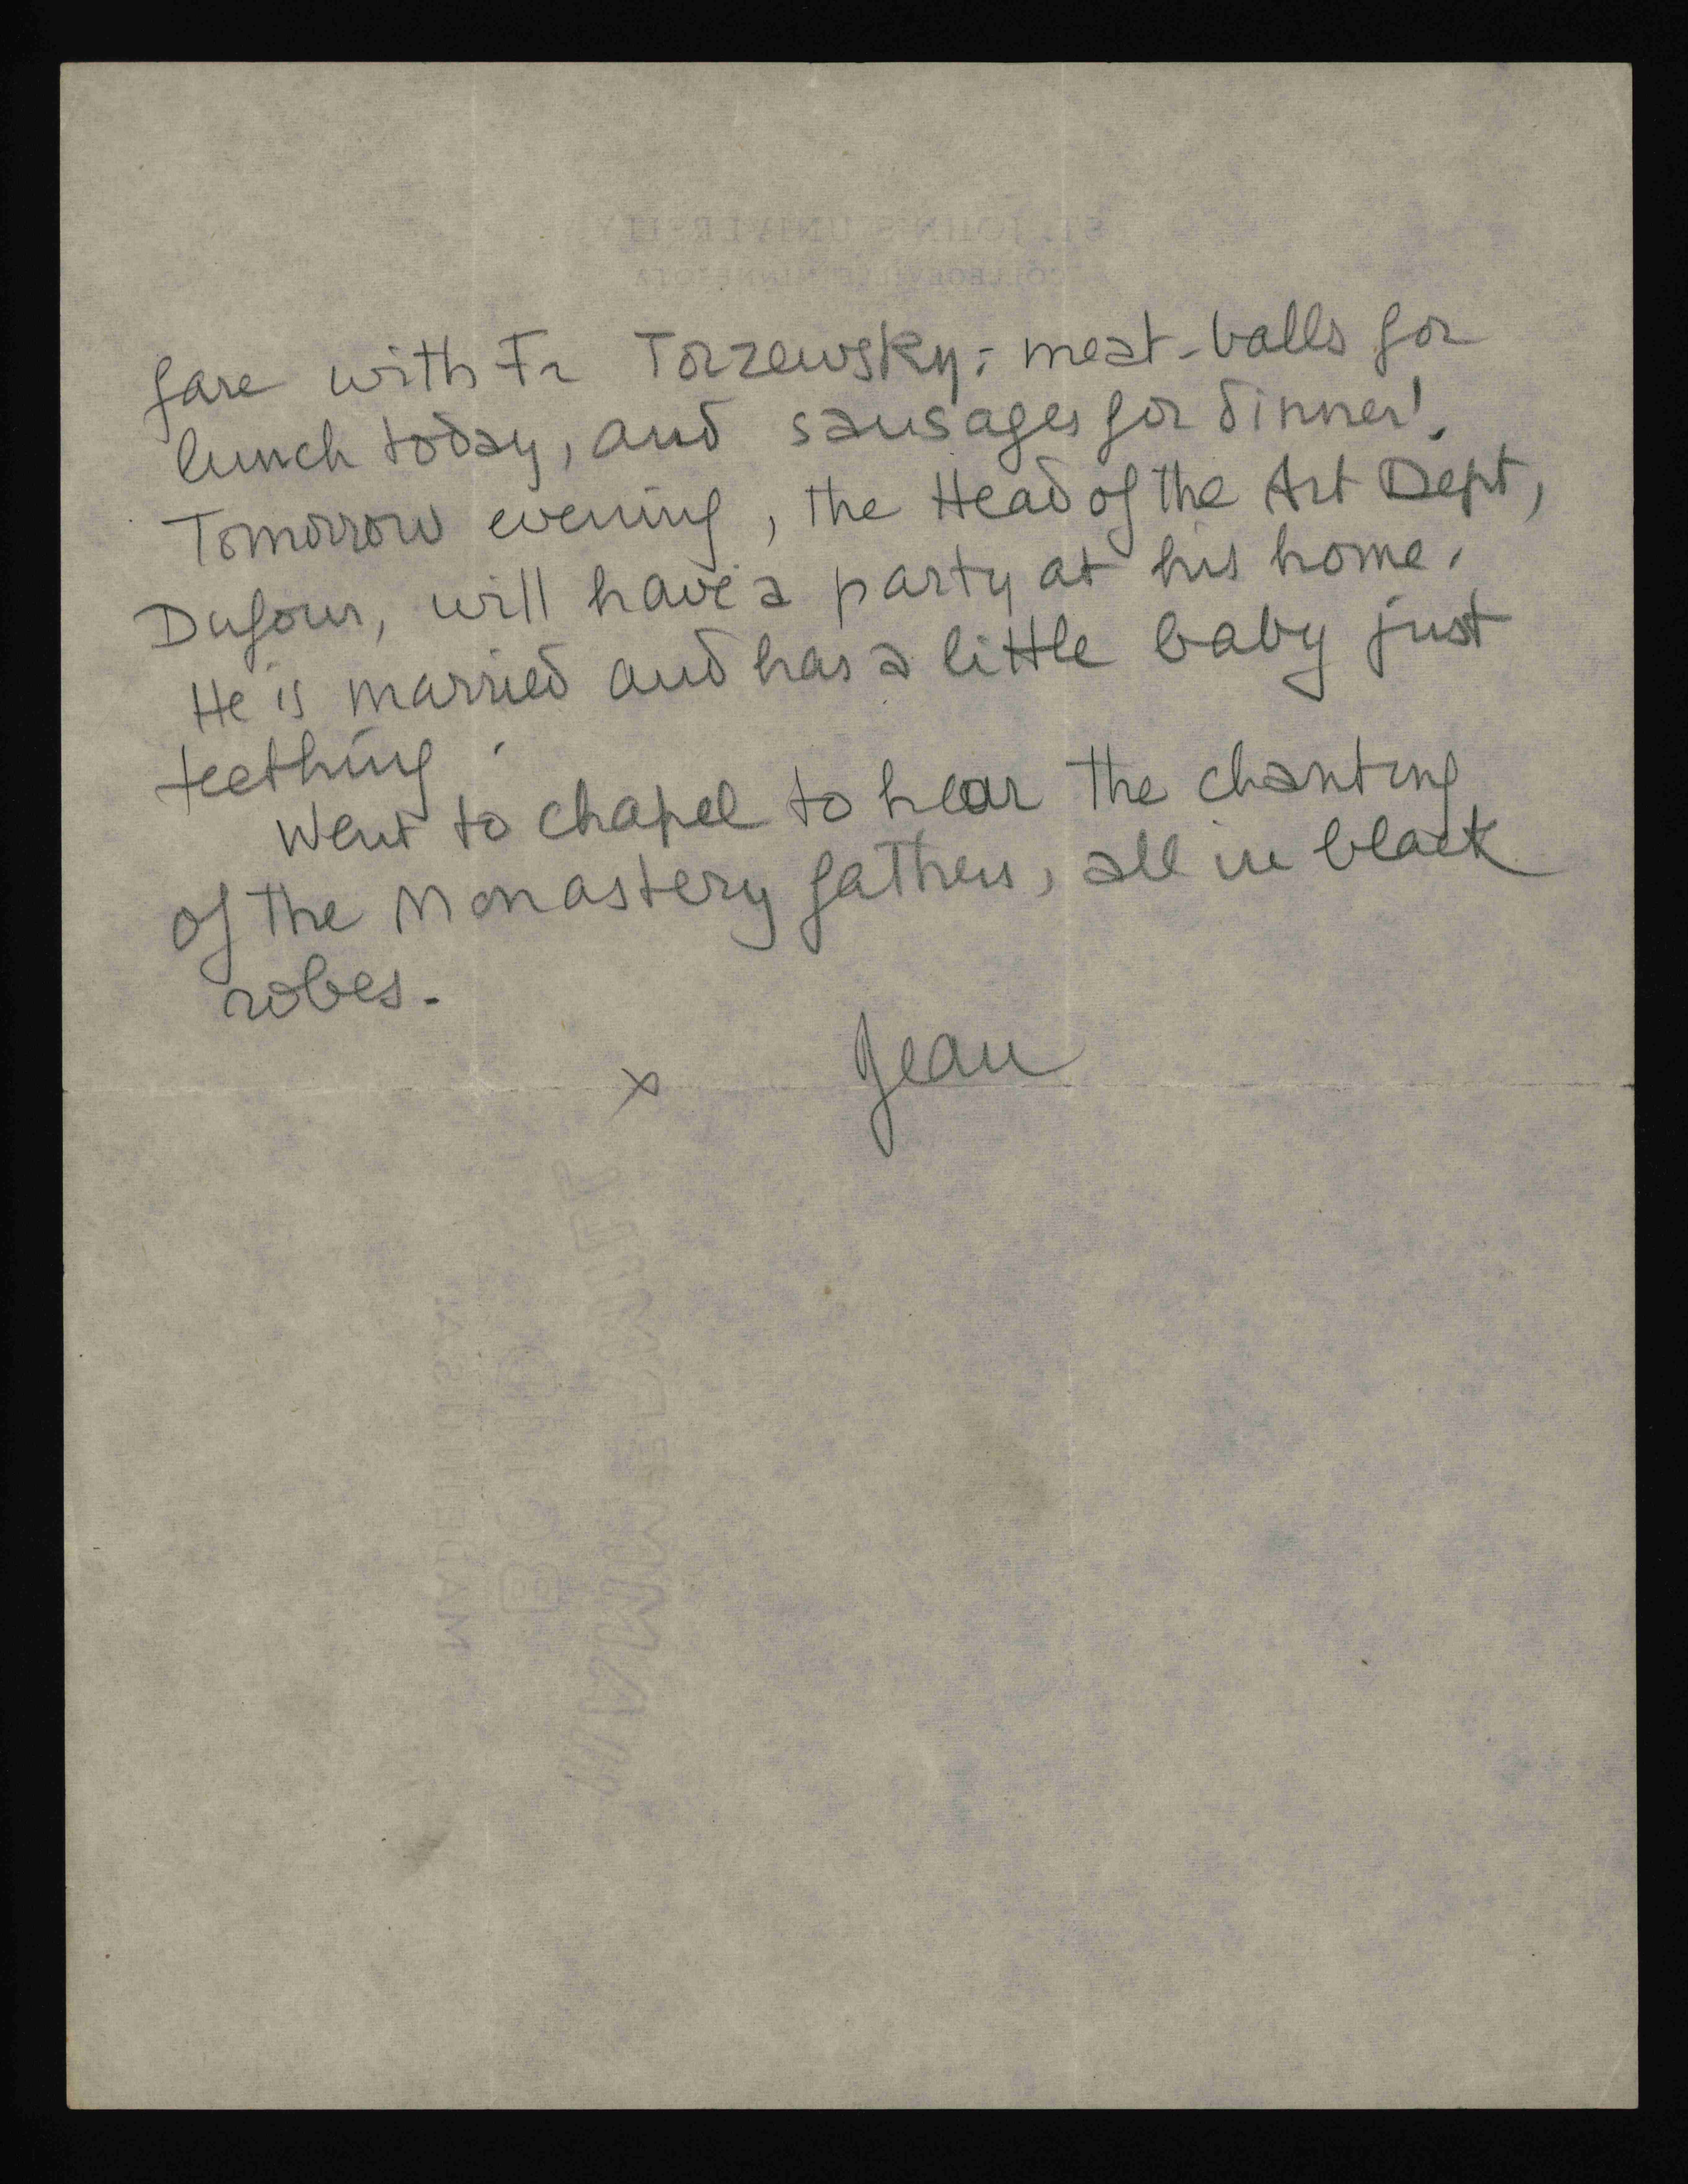 fare with Fr Torzewsky: meat-balls for
lunch today, and sausages for dinner!
Tomorrow evening, the Head of the Art Dept,
Dufour, will have a party at his home.
He is married and has a little baby just
teething.
Went to chapel to hear the chanting
of the Monastery fathers, all in black
robes.
x Jean
ST. JOHN'S UNIVERSITY
COLLEGEVILLE, MINNESOTA